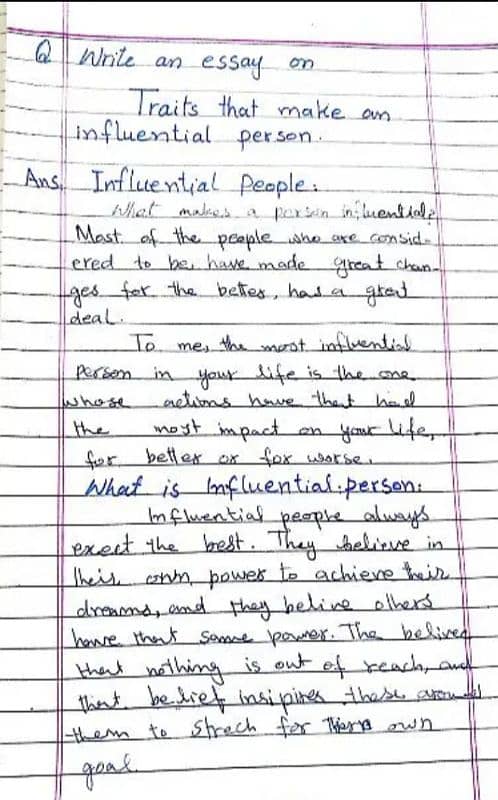 Q Write an essay on
Traits that make an
influential person.
Ans. Influential People:
What makes a person influential?
Most of the people who are consid-
ered to be, have made great chan-
ges for the better, had a great
deal.
To me, the most influential
Person in your life is the one
whose actions have that had
the most impact on your life,
for better or for worse.
What is Influential person:
Influential people always
exect the best. They believe in
their own power to achieve their
dreams, and they belive others
have that same power. The belived
that nothing is out of reach, and
that belief insipires those around
them to strech for own
goal.